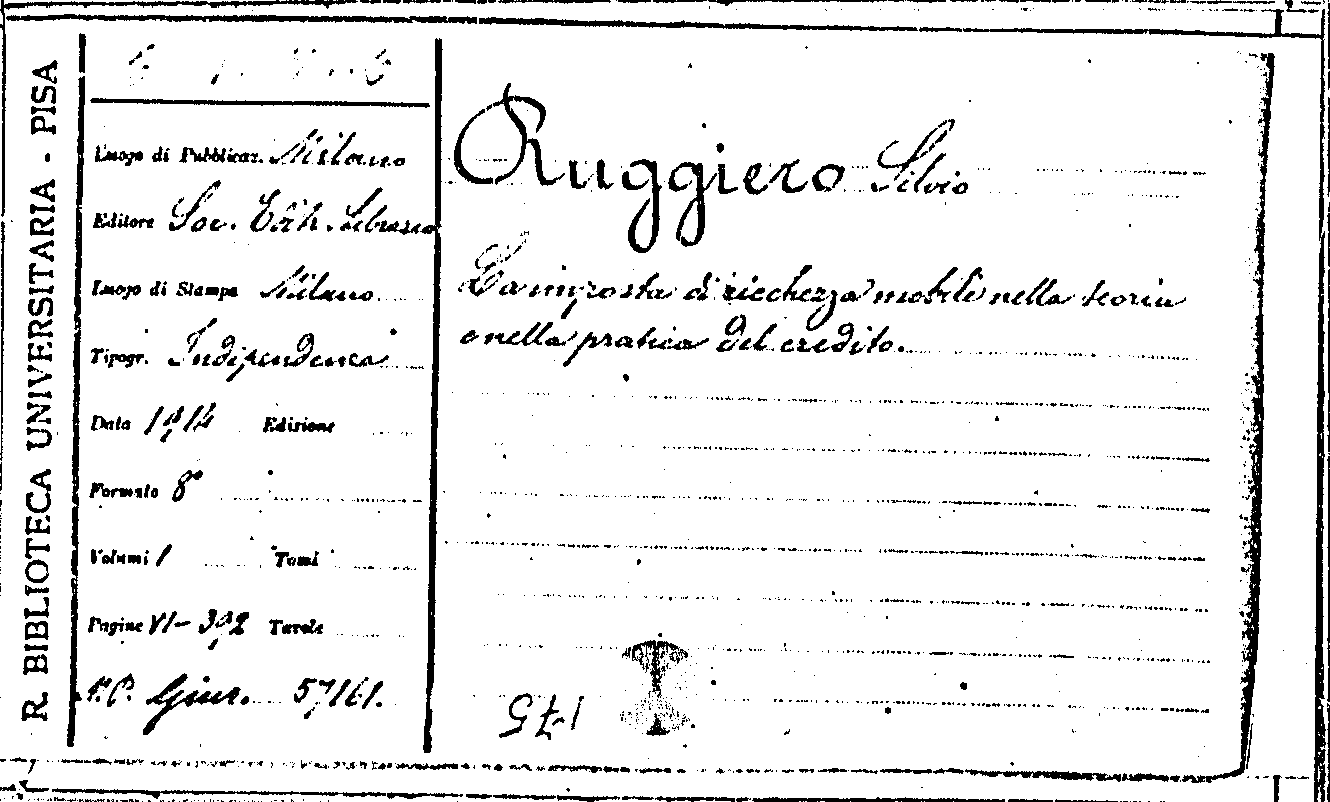 R. BIBLIOTECA UNIVERSITARIA - PISA
Luogo di Pubblicaz. Milano
Editore Soc. Edit. Libraria
Luogo di Stampa Milano
Tipogr. Indipendenza
Data 1914 Edizione
Formato 8°
Volumi 1 Tomi
Pagine VI-392 Tavole
N.P. Giur. 57161.
Ruggiero Silvio
La imposta di ricchezza mobile nella teoria
e nella pratica del credito.